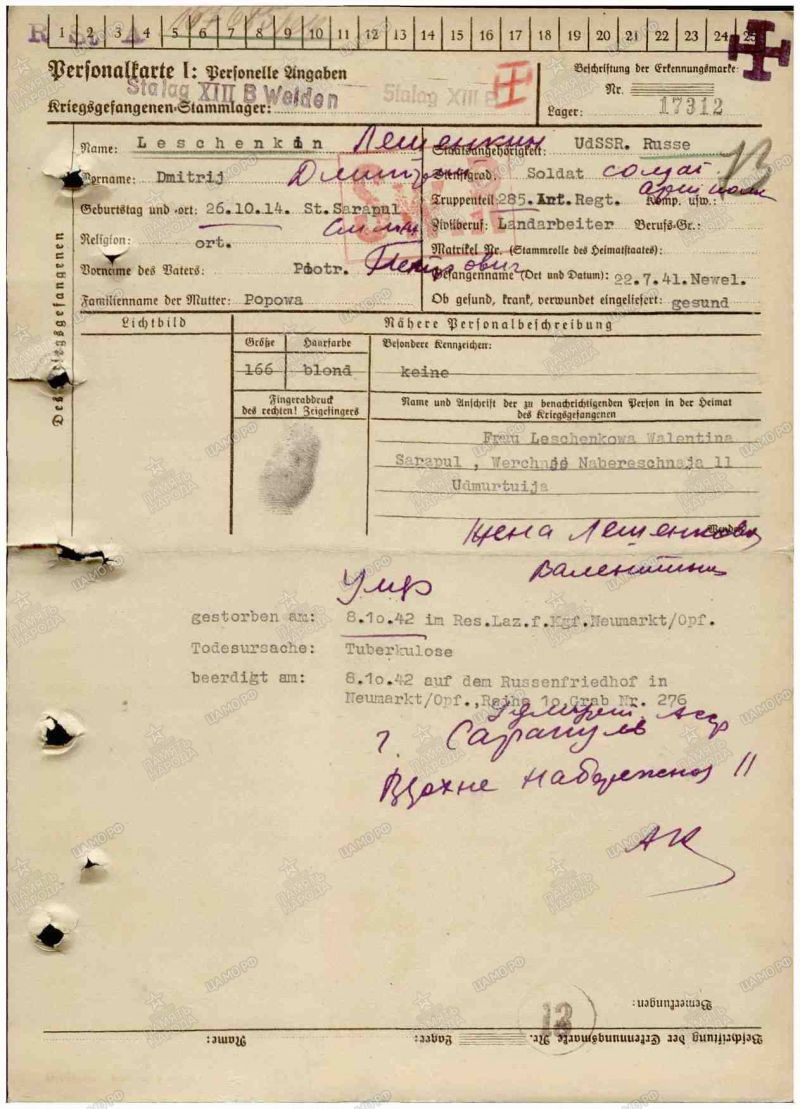 R St A
1 2 3 4 5 6 7 8 9 10 11 12 13 14 15 16 17 18 19 20 21 22 23 24 25
Personalkarte I: Personelle Angaben
Beschriftung der Erkennungsmarke:
Stalag XIII B Weiden
Stalag XIII B
Nr. 17312
Kriegsgefangenen-Stammlager:
Lager:
Des Kriegsgefangenen
Name: Leschenkin Лешенкин
Staatsangehörigkeit: UdSSR. Russe
13
Vorname: Dmitrij
Dienstgrad: Soldat солдат
Geburtstag und -ort: 26.10.14. St.Sarapul
Truppenteil: 285.Ant.Regt. Komp. usw.:
Religion: ort.
Zivilberuf: Landarbeiter Berufs-Gr.:
Matrikel Nr. (Stammrolle des Heimatstaates):
Vorname des Vaters: Piotr. Петрович
Gefangennahme (Ort und Datum): 22.7.41. Newel.
Familienname der Mutter: Popowa
Ob gesund, krank, verwundet eingeliefert: gesund
Lichtbild
Nähere Personalbeschreibung
Größe
Haarfarbe
Besondere Kennzeichen:
166
blond
keine
Fingerabdruck
des rechten! Zeigefingers
Name und Anschrift der zu benachrichtigenden Person in der Heimat
des Kriegsgefangenen
Frau Leschenkowa Walentina
Sarapul , Werchnjs Nabereschnaja 11
Udmurtuija
Жена Лешенкова
Валентина
Умр
gestorben am: 8.10.42 im Res.Laz.f.Kgf.Neumarkt/Opf.
Todesursache: Tuberkulose
beerdigt am: 8.10.42 auf dem Russenfriedhof in
Neumarkt/Opf.,Reihe 10,Grab Nr. 276
г. Сарапуль
набережной 11
АК
Bemerkungen:
13
Beschriftung der Erkennungsmarke Nr.
Lager:
Name:
ЦАМО РФ
ПАМЯТЬ НАРОДА